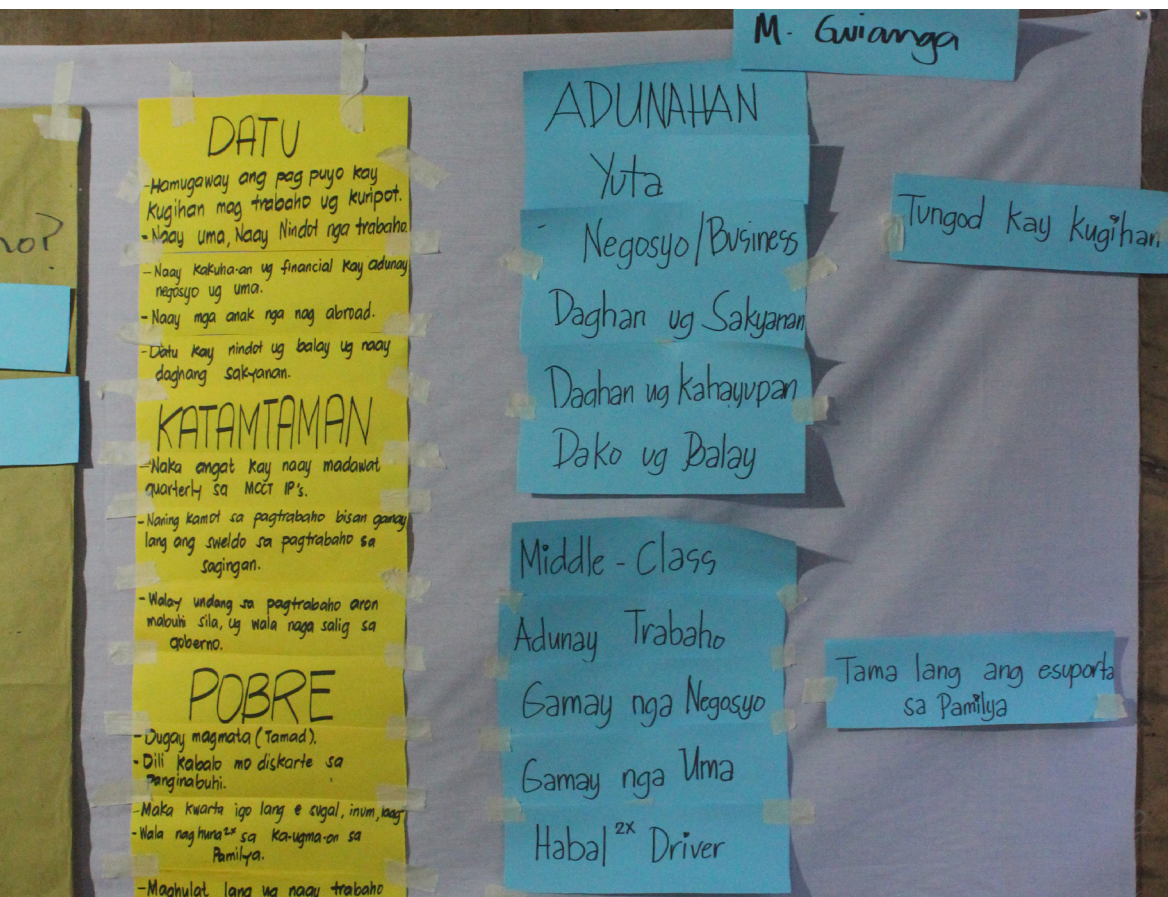 no?
DATU
-Hamugaway ang pag puyo kay
kugihan mag trabaho ug kuripot.
- Naay uma, Naay Nindot nga trabaho
- Naay kakuha-an ug financial kay adunay
negosyo ug uma.
- Naay mga anak nga nag abroad.
-Datu kay nindot ug balay ug naay
daghang sakyanan.
KATAMTAMAN
-Naka angat kay naay madawat
quarterly sa MCCT IP's.
-Naning kamot sa pagtrabaho bisan gamay
lang ang sweldo sa pagtrabaho sa
sagingan.
-Walay undang sa pagtrabaho aron
mabuhi sila, ug wala naga salig sa
goberno.
POBRE
-Dugay magmata (Tamad).
-Dili kabalo mo diskarte sa
Panginabuhi.
-Maka kwarta igo lang e sugal, inum, laag
-Wala nag huna2x sa ka-ugma-on sa
Pamilya.
-Maghulat lang ug naay trabaho
M. Guianga
ADUNAHAN
Yuta
- Negosyo/Business
Daghan ug Sakyanan
Daghan ug Kahayupan
Dako ug Balay
Tungod kay kugihan
Middle-Class
Adunay Trabaho
Gamay nga Negosyo
Gamay nga Uma
Habal 2x Driver
Tama lang ang esuporta
sa Pamilya